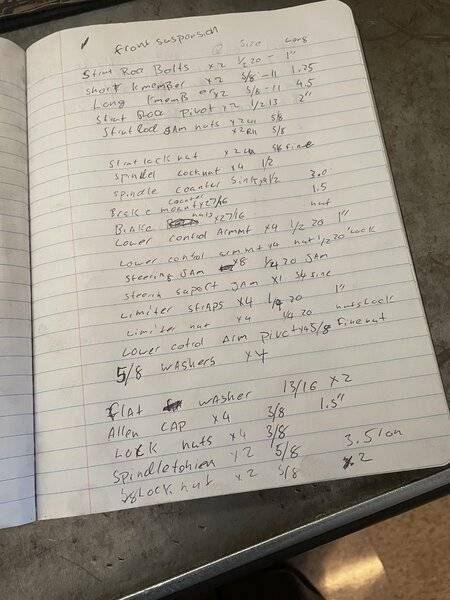 front suspension
Q Size Long
Strut Rod Bolts x2 1/2 20 - 1"
short kmember x2 5/8 - 11 1.25
Long kmember x2 5/8 - 11 4.5
Strut Rod Pivot x2 1/2 13 2"
Strut Rod JAm nuts x2 LH 5/8
x2 RH 5/8
Strut lock nut x2 5/8 fine
Spindel Locknut x4 1/2
Spindle counter Sink 1/2 3.0
Brake mount x2 7/16 1.5
counter
Brake nuts x2 7/16 nut
Lower control Arm mt x4 1/2 20 1"
Lower control arm mt x4 nut 1/2 20 lock
Steering JAm x8 1/4 20 JAM
Steerin suport JAM x1 3/4 fine
Limiter straps x4 1/4 20 1"
Limiter nut x4 1/4 20 nuts Lock
Lower cotrol Arm pivct x4 5/8 fine nut
5/8 WAshers x4
flAt WAsher 13/16 x2
Allen CAP x4 3/8 1.5"
Lock nuts x4 3/8
Spindletohien x2 5/8 3.5 lon
5/8 Lock nut x2 5/8 x2